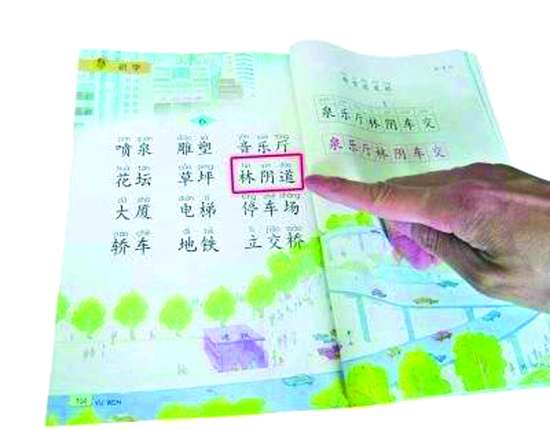 识字
6
pēn quán diāo sù yīn yuè tīng
喷泉 雕塑 音乐厅
huā tán cǎo píng lín yīn dào
花坛 草坪 林阴道
dà shà diàn tī tíng chē chǎng
大厦 电梯 停车场
jiào chē dì tiě lì jiāo qiáo
轿车 地铁 立交桥
YU WEN
泉乐厅林阴车交
泉乐厅林阴车交